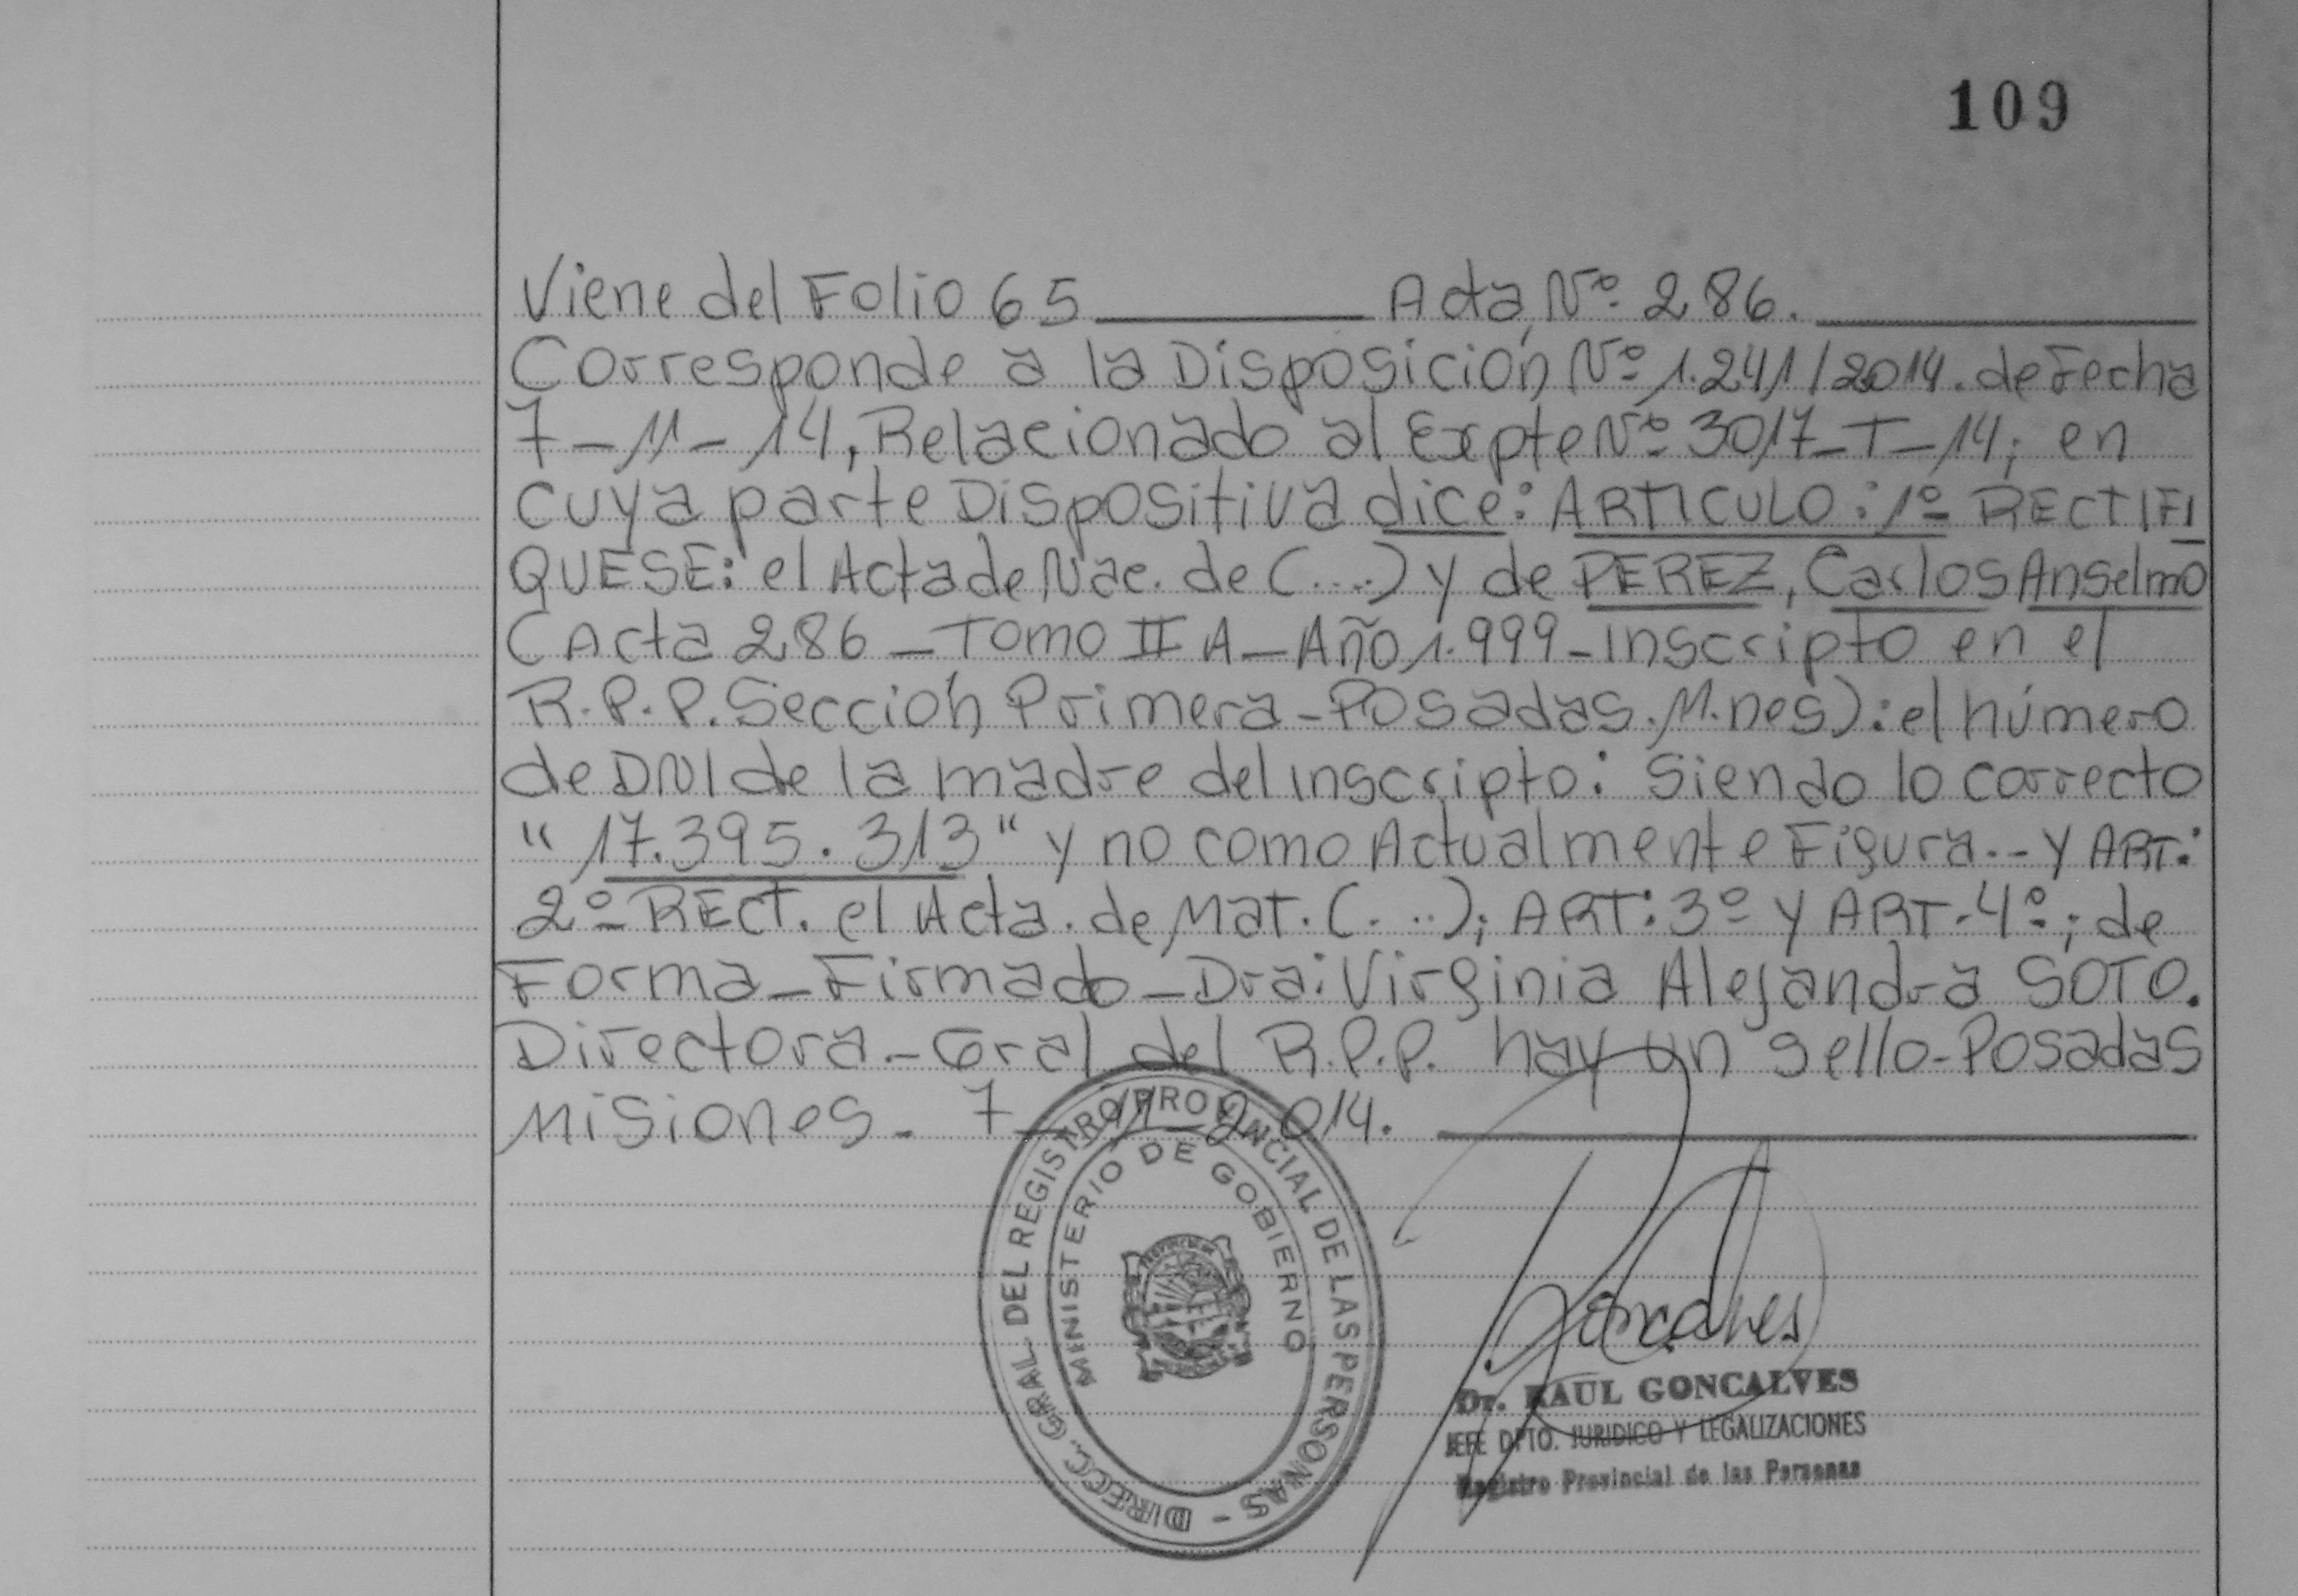 109
Viene del Folio 65 ______ Acta Nº 286. ______
Corresponde a la Disposición Nº 1.241/2014. de Fecha
7-11-14, Relacionado al Expte Nº 3017-T-14; en
cuya parte Dispositiva dice: ARTICULO: 1º RECTIFI
QUESE: el Acta de Nac. de (....) y de PEREZ, Carlos Anselmo
(Acta 286 - Tomo II A - Año 1.999 - Inscripto en el
R.P.P. Sección Primera - Posadas. M.nes): el número
de DNI de la madre del inscripto: Siendo lo correcto
"17.395.313" y no como Actualmente Figura.-- y ART:
2º RECT. el Acta. de Mat. (...); ART: 3º y ART. 4º; de
Forma - Firmado - Dra: Virginia Alejandra SOTO.
Directora - Gral del R.P.P. hay un sello - Posadas
Misiones - 7 - 11 - 2.014. ______
DIRECC. GRAL. DEL REGISTRO PROVINCIAL DE LAS PERSONAS -
MINISTERIO DE GOBIERNO
Goncalves
Dr. RAUL GONCALVES
JEFE DPTO. JURIDICO Y LEGALIZACIONES
Registro Provincial de las Personas